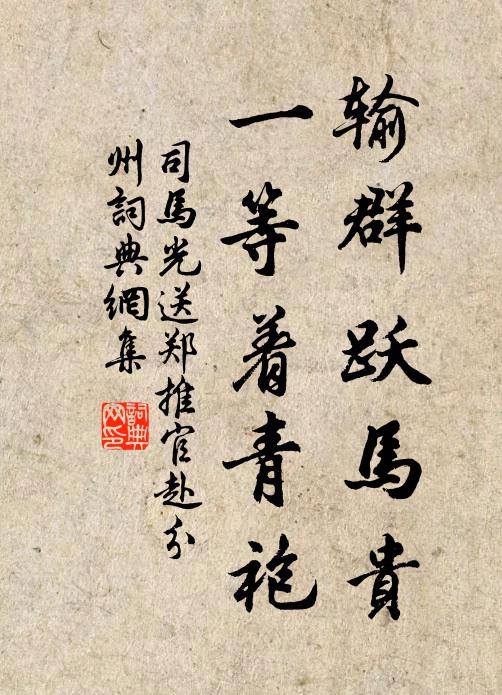 输群跃馬貴
一等着青袍
司馬光送郑推官赴汾
州詞典網集
詞典網印